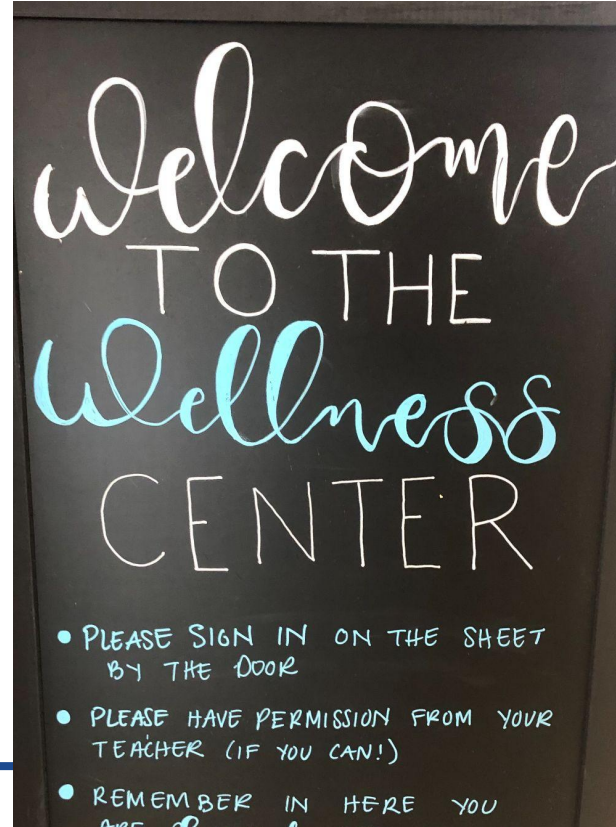 welcome
TO THE
Wellness
CENTER
• PLEASE SIGN IN ON THE SHEET
BY THE DOOR
• PLEASE HAVE PERMISSION FROM YOUR
TEACHER (IF YOU CAN!)
• REMEMBER IN HERE YOU
ARE